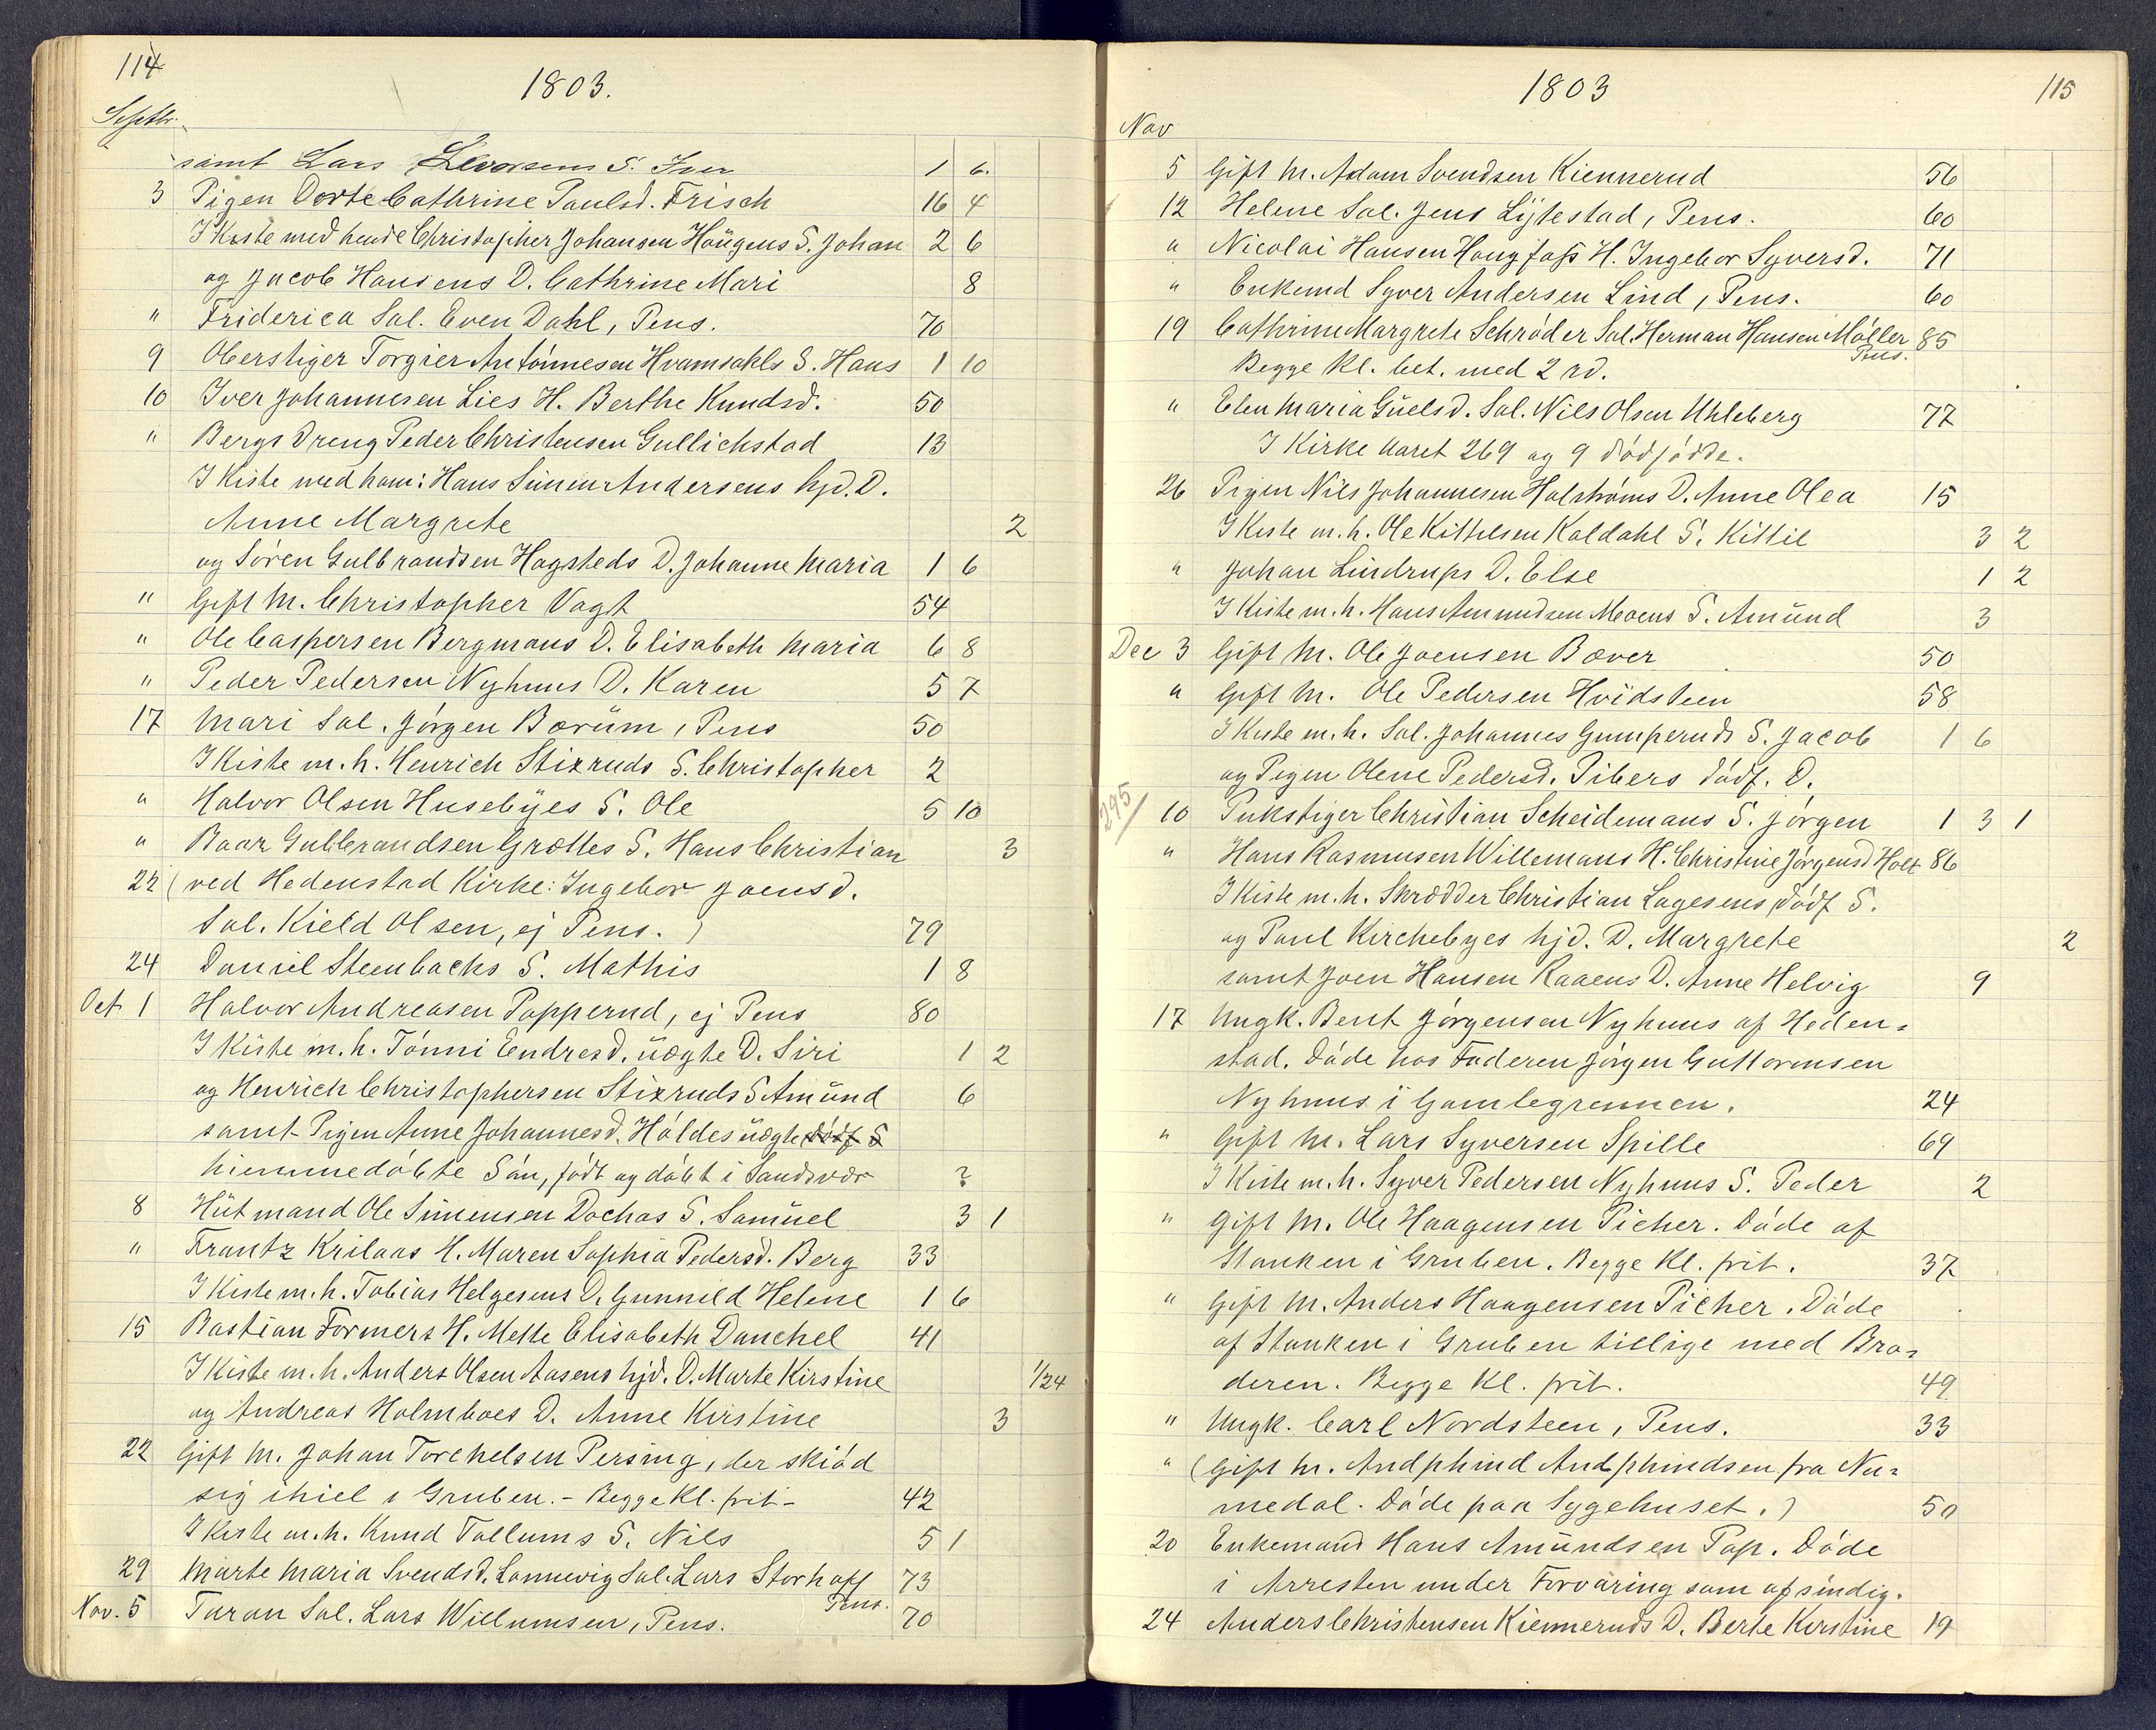 114
1803.
Septbr.
samt Lars Levorsens S. Iver 1 6.
3 Pigen Dorte Cathrine Paulsd. Frisch 16 4
I Kiste med hende Christopher Johansen Haugens S. Johan 2 6
og Jacob Hansens D. Cathrine Mari 8
" Friderica Sal. Even Dahl, Pens. 70
9 Oberstiger Torgier Antónnesen Hvamsahls S. Hans 1 10
10 Iver Johannesen Lies H. Berthe Knudsd. 50
" Bergs Dreng Peder Christensen Gullichstad 13
I Kiste med ham: Hans Simen Andersens hjd. D.
Anne Margrete 2
og Sóren Gulbrandsen Hagsteds D. Johanne Maria 1 6
" Gift M. Christopher Vogt 54
" Ole Caspersen Bergmans D. Elisabeth Maria 6 8
" Peder Pedersen Nyhuus D. Karen 5 7
17 Mari Sal. Jórgen Bærüm, Pens 50
I Kiste m. h. Henrich Stixruds S. Christopher 2
" Halvor Olsen Husebÿes S. Ole 5 10
" Baar Gulbrandsen Grættes S. Hans Christian 3
22 (ved Hedenstad Kirke: Ingebor Joensd.
Sal. Kield Olsen, ej Pens.) 79
24 Daniel Steenbachs S. Mathis 1 8
Oct 1 Halvor Andreasen Papperud, ej Pens 80
I Kiste m. h. Tónni Endresd. üægte D. Siri 1 2
og Henrich Christophersen Stixruds S Amünd 6
samt Pigen Anne Johannesd. Hóldes üægte dódf S
hiemmedóbte Són, fódt og dóbt i Sandsvær ?
8 Hütmand Ole Simensen Dochas S. Samüel 3 1
" Frantz Krilaas H. Maren Sophia Pedersd. Berg 33
I Kiste m. h. Tobias Helgesens D. Gunnild Helene 1 6
15 Bastian Formers H. Mette Elisabeth Danchel 41
I Kiste m. h. Anders Olsen Aasens hjd. D. Marte Kirstine 1/24
og Andreas Holmboes D. Anne Kirstine 3
22 Gift M. Johan Torchelsen Persing, der skiód
sig ihiel i Gruben. - Begge Kl. frit - 42
I Kiste m. h. Knud Tollums S. Nils 5 1
29 Marte Maria Svendsd. Lannevig Sal. Lars Storhoff 73
Pens.
Nov. 5 Taran Sal. Lars Willumsen, Pens. 70
115
1803
Nov
5 Gift M. Adam Svendsen Kiennerud 56
12 Helene Sal. Jens Lÿtestad, Pens. 60
" Nicolai Hansen Haugfoss H. Ingebor Syversd. 71
" Enkemd Syver Andersen Lind, Pens. 60
19 Cathrine Margrete Schróder Sal. Herman Hansen Móller 85
Pens.
Begge Kl. bet. med 2 rd.
" Elen Maria Güelsd. Sal. Nils Olsen Uhleberg 77
I Kirke Aaret 269 og 9 dódfódde.
26 Pigen Nils Johannesen Holstróms D. Anne Olea 15
I Kiste m. h. Ole Kittilsen Koldahl S. Kittil 3 2
" Johan Lindrups D. Else 1 2
I Kiste m. h. Hans Amundsen Moens S. Amünd 3
Dec 3 Gift M. Ole Joensen Bæver 50
" Gift M. Ole Pedersen Hvidsteen 58
I Kiste m. h. Sal. Johannes Gumperuds S. Jacob 1 6
og Pigen Olene Pedersd. Pibers dódf. D.
295/
10 Pukstiger Christian Scheidemans S. Jórgen 1 3 1
" Hans Rasmusen Willemans H. Christine Jórgensd Holt 86
I Kiste m. h. Skrædder Christian Lagesens dódf S.
og Paul Kirchebyes hjd. D. Margrete 2
samt Joen Hansen Raaens D. Anne Helvig 9
17 Ungk. Bent Jórgensen Nyhuus af Heden=
stad. Dóde hos Faderen Jórgen Guttormsen
Nyhuus i Gamlegrennen. 24
" Gift M. Lars Syversen Spille 69
I Kiste m. h. Syver Pedersen Nyhuus S. Peder 2
" Gift M. Ole Haagensen Picher. Dóde af
Stanken i Gruben. Begge Kl. frit. 37
" Gift M. Anders Haagensen Picher. Dóde
af Stanken i Gruben tillige med Bro=
deren. Begge Kl. frit. 49
" Ungk. Carl Nordsteen, Pens. 33
" (Gift M. Andphind Andphindsen fra Nu=
medal. Dóde paa Sygehuset.) 50
20 Enkemand Hans Amündsen Pap. Dóde
i Arresten under Forvaring som afsindig.
24 Anders Christensen Kienneruds D. Berte Kirstine 19